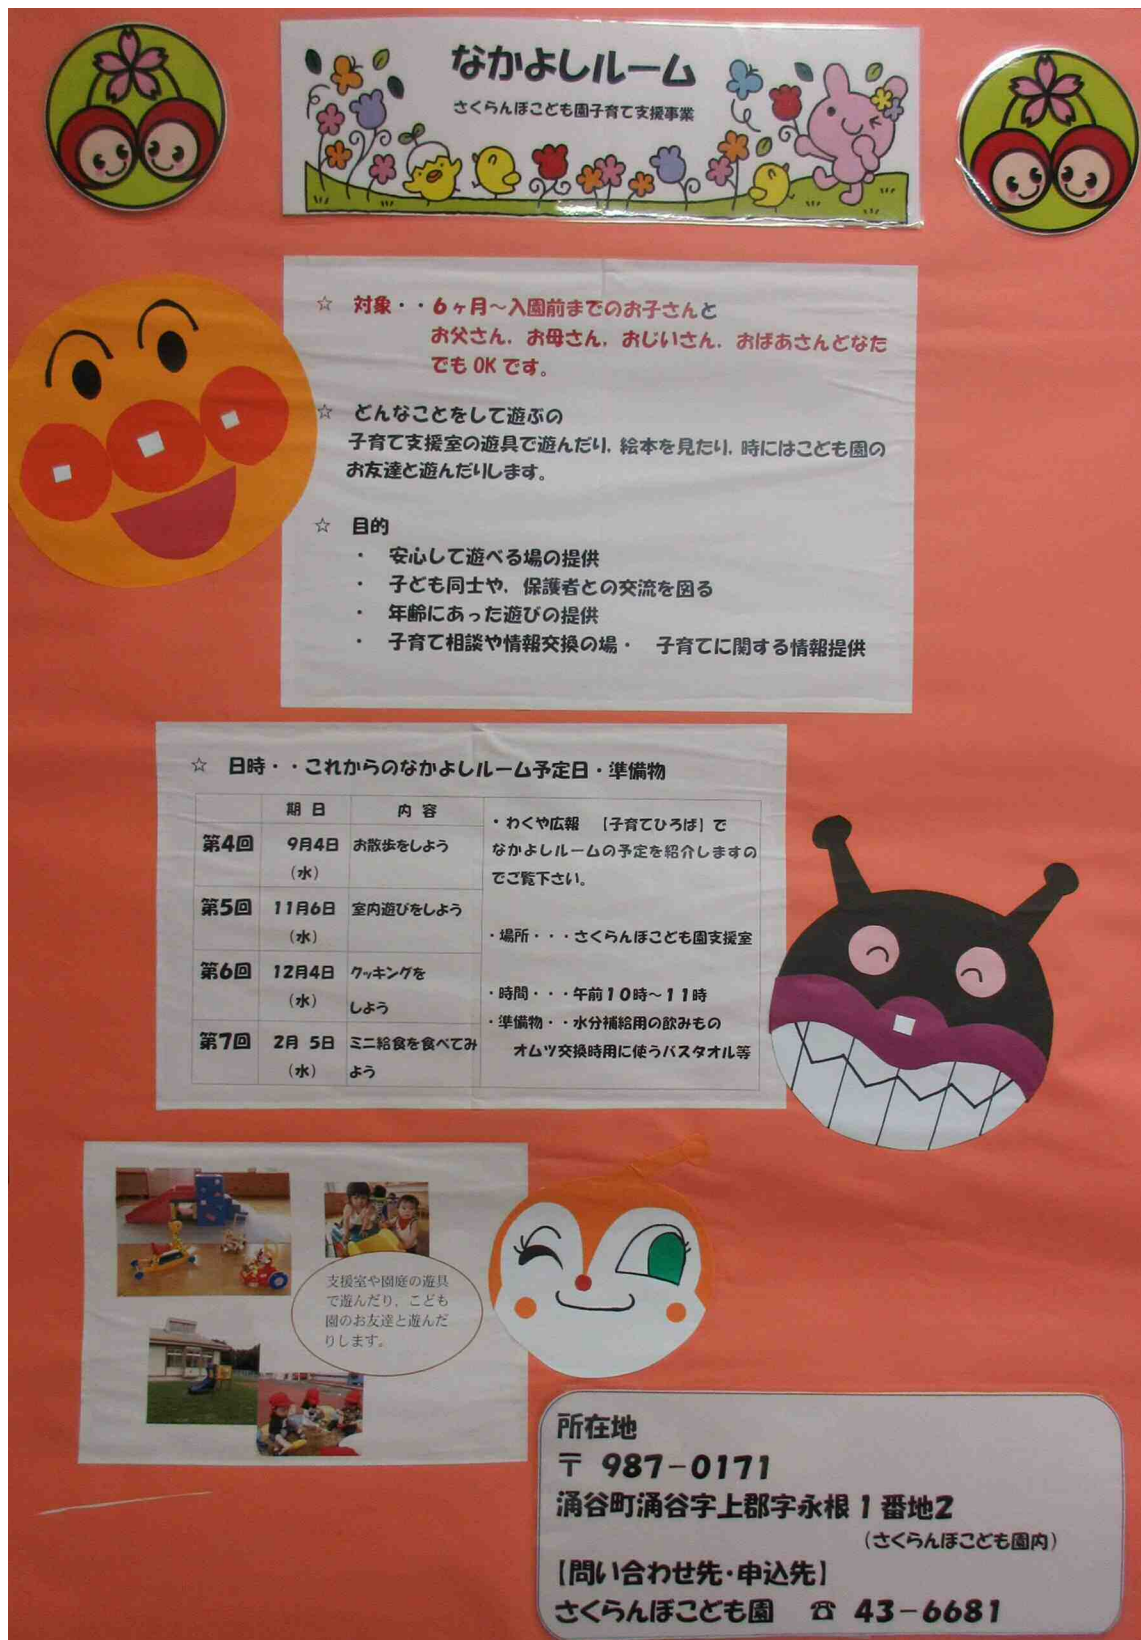 なかよしルーム
さくらんぼこども園子育て支援事業
☆ 対象・・6ヶ月〜入園前までのお子さんと
お父さん，お母さん，おじいさん，おばあさんどなた
でもOKです。
☆ どんなことをして遊ぶの
子育て支援室の遊具で遊んだり，絵本を見たり，時にはこども園の
お友達と遊んだりします。
☆ 目的
・ 安心して遊べる場の提供
・ 子ども同士や，保護者との交流を図る
・ 年齢にあった遊びの提供
・ 子育て相談や情報交換の場・ 子育てに関する情報提供
☆ 日時・・これからのなかよしルーム予定日・準備物
期 日 内 容
第4回 9月4日 お散歩をしよう
（水）
第5回 11月6日 室内遊びをしよう
（水）
第6回 12月4日 クッキングを
（水） しよう
第7回 2月 5日 ミニ給食を食べてみ
（水） よう
・わくや広報 【子育てひろば】で
なかよしルームの予定を紹介しますの
でご覧下さい。
・場所・・・さくらんぼこども園支援室
・時間・・・午前１０時〜１１時
・準備物・・水分補給用の飲みもの
オムツ交換時用に使うバスタオル等
支援室や園庭の遊具
で遊んだり，こども
園のお友達と遊んだ
りします。
所在地
〒 987－0171
涌谷町涌谷字上郡字永根1番地2
（さくらんぼこども園内）
【問い合わせ先・申込先】
さくらんぼこども園 ☎ 43－6681